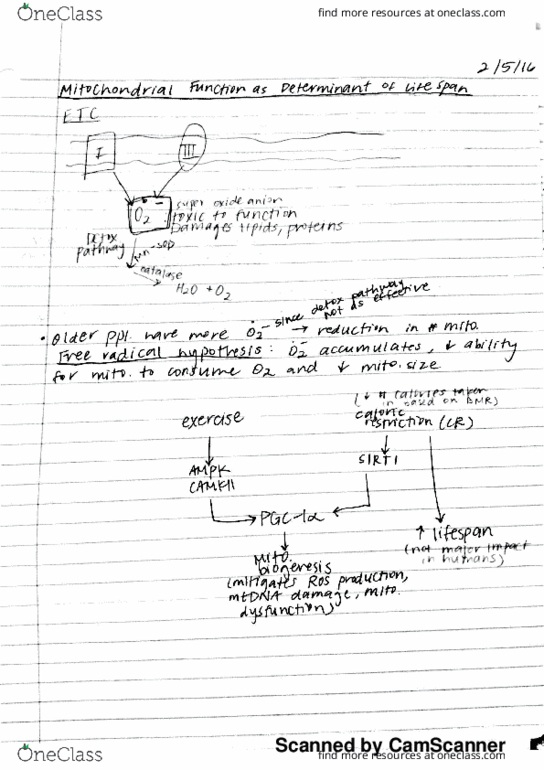 OneClass
find more resources at oneclass.com
2/5/16
Mitochondrial Function as Determinant of Life span
ETC
I
III
O2 -
super oxide anion
toxic to function
Damages lipids, proteins
Detox
pathway
Mn-SOD
catalase
H2O + O2
since detox pathway
not as effective
• Older ppl. have more O2- → reduction in # mito.
Free radical hypothesis: O2- accumulates, ↓ ability
for mito. to consume O2 and ↓ mito. size
(↓ # calories taken
in based on BMR)
exercise
caloric
restriction (CR)
AMPK
CAMKII
SIRT1
PGC-1α
↑ lifespan
(not major impact
in humans)
Mito.
biogenesis
(mitigates ROS production,
mtDNA damage, mito.
dysfunction)
Scanned by CamScanner
OneClass
find more resources at oneclass.com